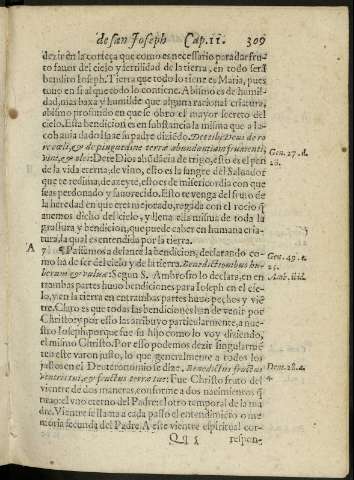 de san Joseph Cap. 11. 309
dezir en la corteça que como es necessario para dar fru-
to fauor del cielo y fertilidad de la tierra, en todo será
bendito Ioseph. Tierra que todo lo tiene es Maria, pues
tuuo en si al que todo lo contiene. Abismo es de humil-
dad, mas baxa y humilde que alguna racional criatura,
abismo profundo en que se obro el mayor secreto del
cielo. Esta bendicion es en substancia la misma que a Ia-
cob auia dado Isaac su padre diziẽdo. Det tibi Deus de ro
re cœli, & de pinguedine terræ abundantiam frumenti,
vini, & olei: Dete Dios abũdãcia de trigo, esto es el pan
de la vida eterna: de vino, esto es la sangre del Saluador
que te redima, de azeyte, esto es de misericordia con que
seas perdonado y fauorecido. Esto te venga del fruto de
la heredad en que eres mejorado, regada con el rocio q̃
auemos dicho del cielo, y llena ella misma de toda la
grossura y bendicion, que puede caber en humana cria-
tura, la qual es entendida por la tierra.
Gen. 27. d.
28.
A 7 ¶ Passemos adelante la bendicion, declarando co-
mo ha de ser del cielo y de la tierra. Benedictionibus hu-
berum & vuluæ: Segun S. Ambrosio lo declara, en en-
trambas partes huuo bendiciones para Ioseph en el cie-
lo, y en la tierra en entrambas partes huuo pechos y viẽ
tre. Claro es que todas las bendiciones han de venir por
Christo: y por esso las atribuyo particularmente, a nue-
stro Ioseph, porque fue su hijo como lo voy diziendo,
el mismo Christo. Por esso podemos dezir singularmẽ
te o este varon justo, lo que generalmente a todos los
justos en el Deuteronomio se dize. Benedictus fructus
ventris tui, & fructus terræ tuæ: Fue Christo fruto del
vientre de dos maneras, conforme a dos nacimientos q̃
tuuo: el vno eterno del Padre: el otro temporal de la ma
dre. Vientre se llama a cada passo el entendimiẽto o me
moria fecunda del Padre. A este vientre espiritual cor-
Gen. 49. c.
25.
Deu. 28. a.
Qq 5 respon-